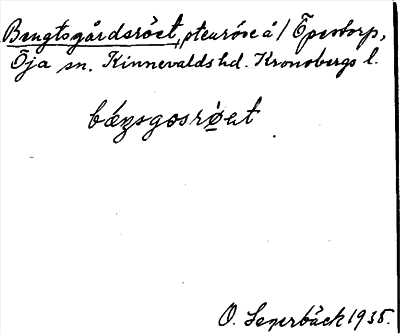 Bengtsgårdsröset, stenröse å / Öpestorp,
Öja sn. Kinnevalds hd. Kronobergs l.
O. Segerbäck 1935.